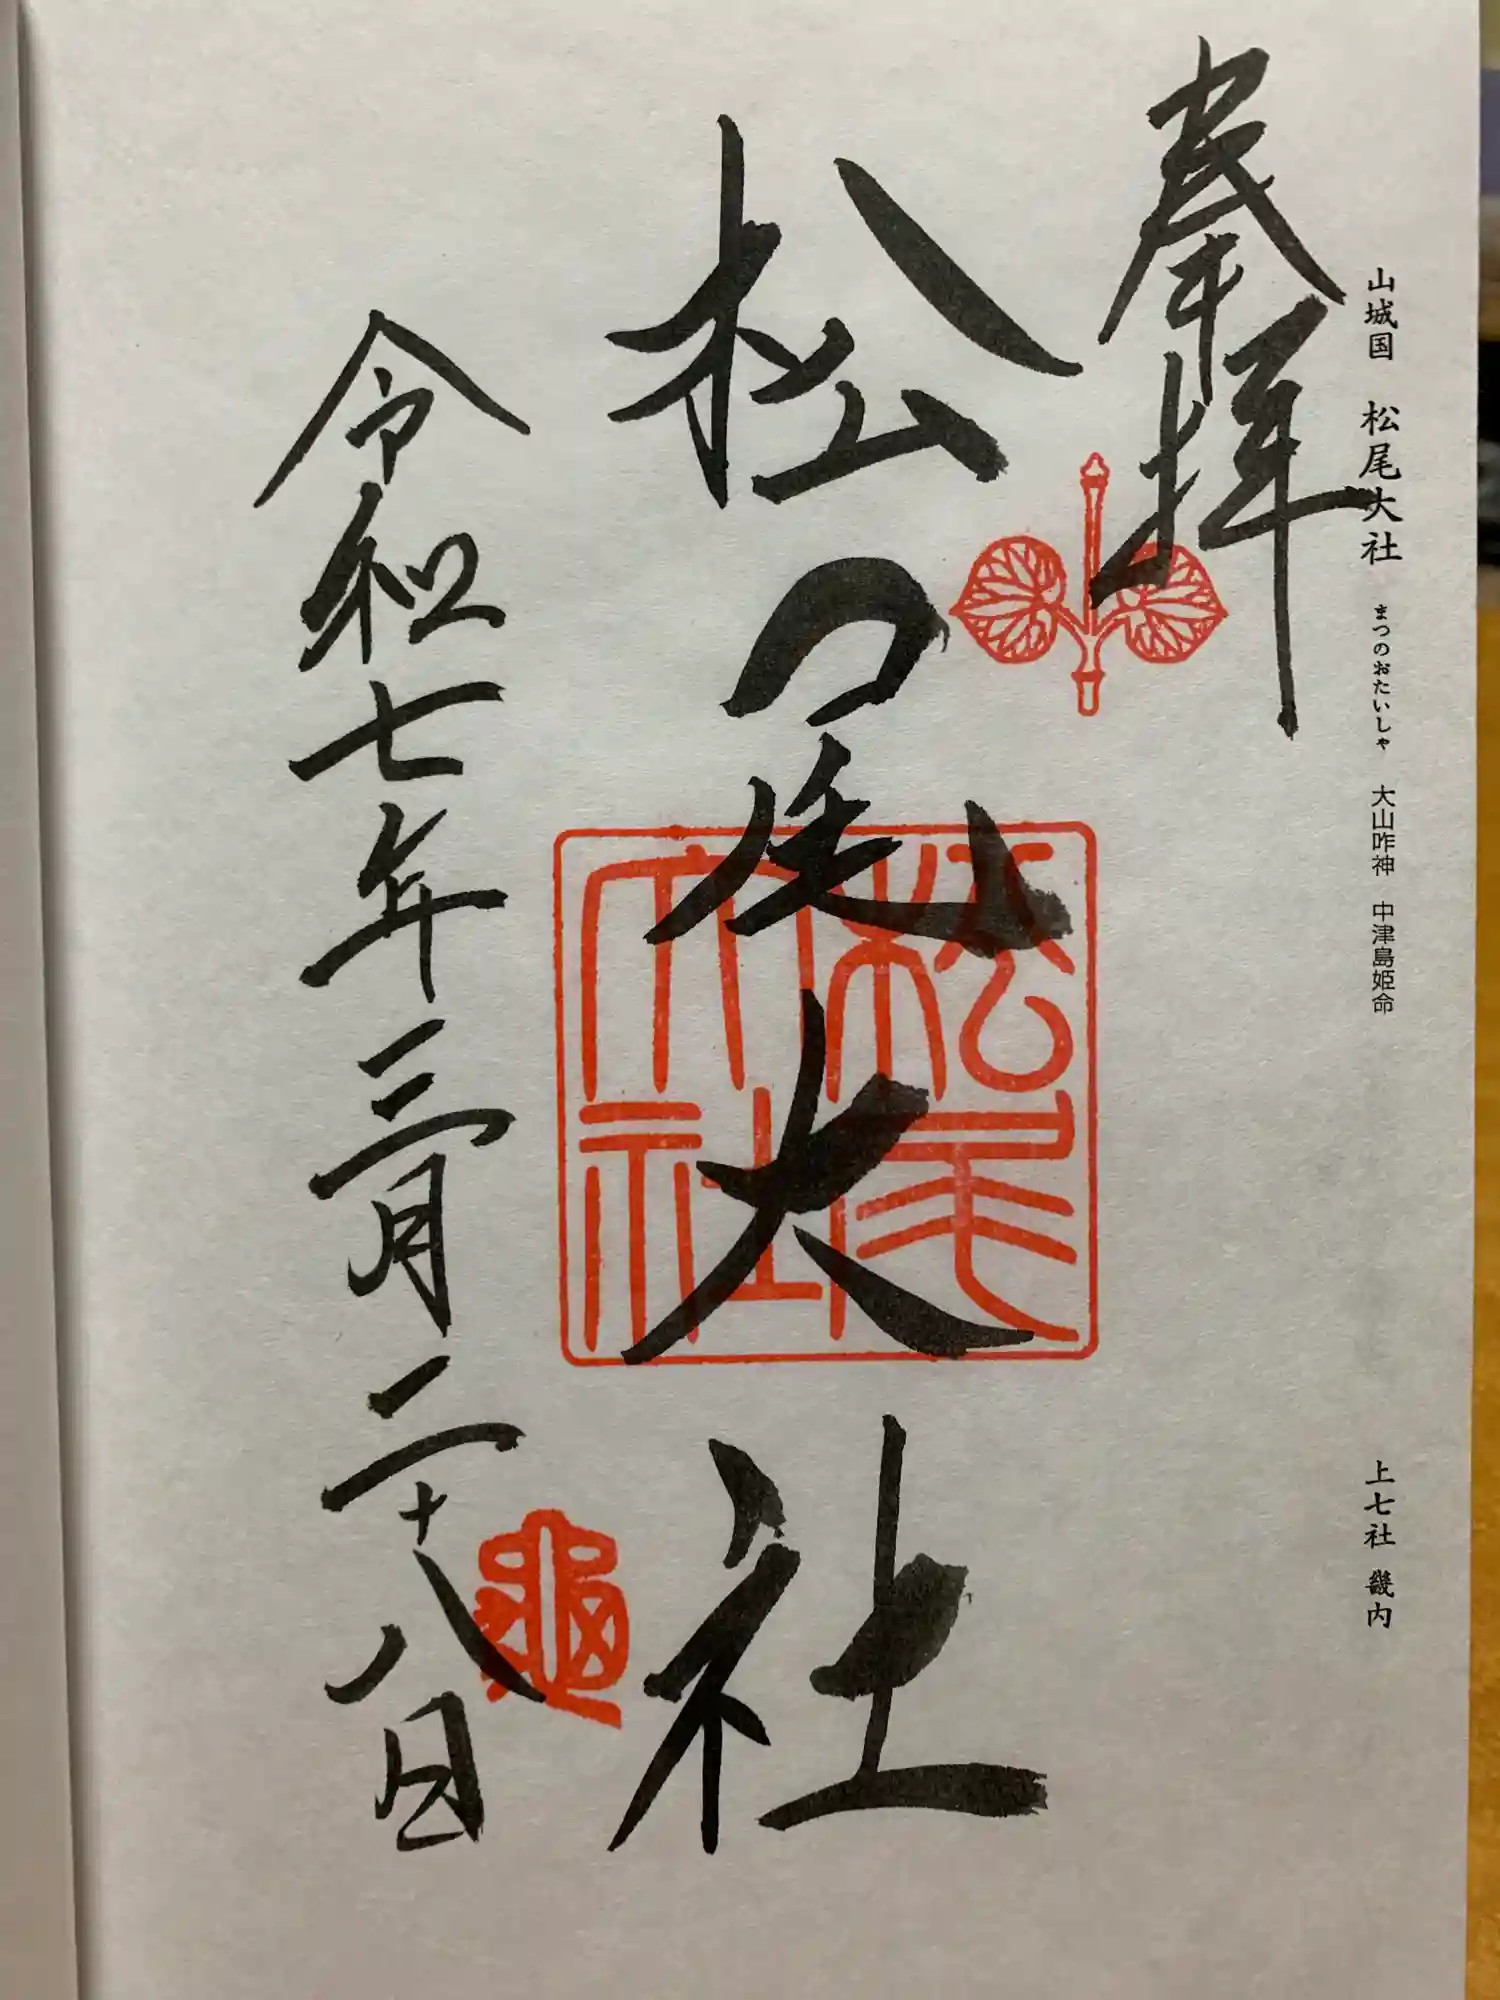 山城国 松尾大社 まつのおたいしゃ 大山咋神 中津島姫命
上七社 畿内
奉拝
松尾大社
松尾
大社
令和七年三月二十八日
亀